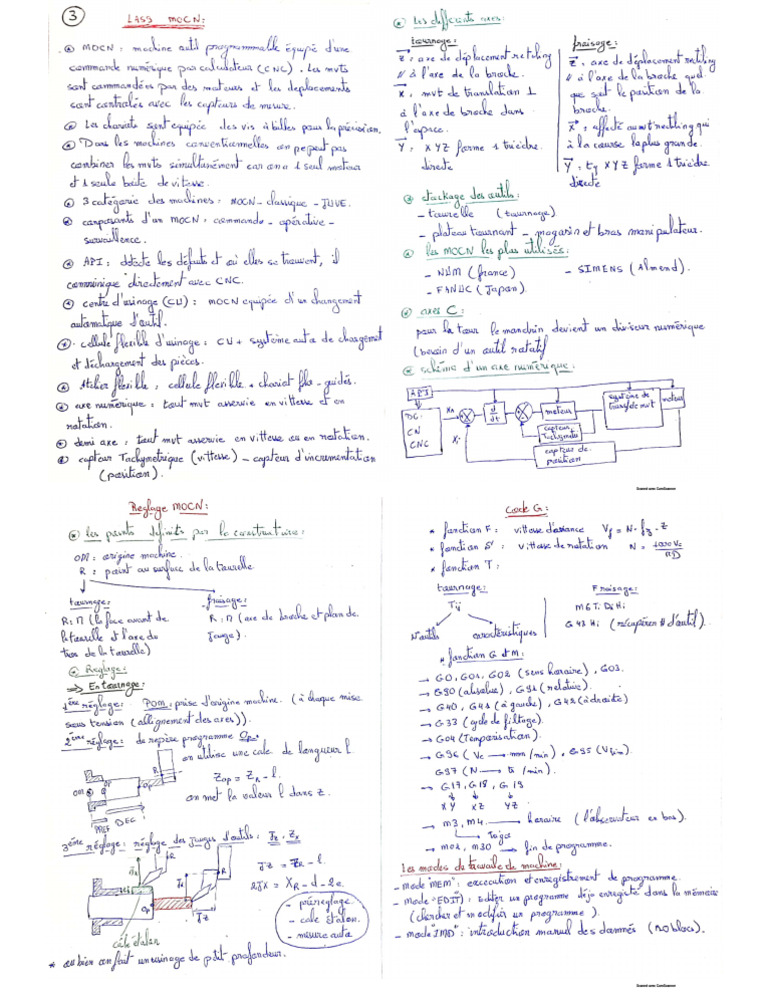 3
Liss MOCN:
MOCN : machine outil programmable équipé d'une
commande numérique par calculateur (CNC). Les mvts
sont commandées par des moteurs et les deplacements
sont contralés avec les capteurs de mesure.
Les chariots sont equipée des vis à billes pour la précision.
Dans les machines conventionnelles on peut pas
combiner les mvts simultanément car on a 1 seul moteur
et 1 seule boite de vitesse.
3 catégorie des machines : MOCN - classique - JUVE.
composants d'un MOCN : commande - opérative -
surveillence.
API : détecte les défauts et où elles se trouvent, il
communique directement avec CNC.
centre d'usinage (CU) : MOCN equipée d'un changement
automatique d'outil.
cellule flexible d'usinage : CU + système auto de chargemet
et déchargement des pièces.
Atelier flexible : cellule flexible + chariot filo-guidés.
axe numérique : tout mvt asservie en vittesse et en
rotation.
demi axe : tout mvt asservie en vittesse ou en rotation.
capteur Tachymetrique (vittesse) - capteur d'incrementation
(position).
Les differents axes :
tournage :
Z : axe de déplacement rectiling
// à l'axe de la broche.
X : mvt de translation ⊥
à l'axe de broche dans
l'espace.
Y : XYZ forme 1 trièdre
directe
fraisage :
Z : axe de déplacement rectiling
// à l'axe de la broche quel
que soit le position de la
broche.
X : affecté au mvt rectling qui
à la course la plus grande.
Y : tq XYZ forme 1 triedre
directe
stackage des outils :
- tourelle (tournage)
- plateau tournant - magasin et bras manipulateur.
les MOCN les plus utilisés :
- NUM (france) - SIMENS (Almend).
- FANUC (Japan).
axes C :
pour la tour le mandrin devient un diviseur numérique
(besoin d'un outil rotatif
schéma d'un axe numérique :
API
DC
CN
CNC
d/dt
moteur
capteur
Tachymetre
capteur de
position
Scanned with CamScanner
Reglage MOCN :
les points définits par le constructeure :
OM : origine machine.
R : point au surface de la tourelle
tournage :
R : (la face avant de
la tourelle et l'axe du
trou de la tourelle)
fraisage :
R : (axe de broche et plan de
Jauge).
Reglage :
=> En tournage :
1ère réglage : POM : prise d'origine machine. (à chaque mise
sous tension (allignement des axes)).
2ème réglage : de repère programme OP.
on utilise une cale de longueur l.
Zop = ZR - l.
on met la valeur l dans Z.
OM
OP
R
PREF DEC
3ème réglage : réglage des Jauges d'outils : Jz, Jx
Jz = ZR - l.
2Jx = XR - d - 2e.
- préreglage
- cale étalon.
- mesure auto
cale étalon
* ou bien on fait un usinage de ptit profondeur.
Code G :
* fonction F : vittesse d'avance Vf = N · fz · Z
* fonction S : vittesse de rotation N = 1000 Vc / πD
* fonction T :
tournage :
Tij
N°outils caractéristiques
Fraisage :
M6 Ti Di Hi
G43 Hi (récupérer # d'outil).
* fonction G et M :
→ G0, G01, G02 (sens horaire), G03.
→ G90 (absolue), G91 (relative).
→ G40, G41 (à gauche), G42 (à droite)
→ G33 (cycle de filtage).
→ G04 (Temporisation).
→ G96 (Vc → mm/min), G95 (
G97 (N → tr/min).
→ G17, G18, G19
XY XZ YZ
→ m3, m4 → horaire (l'observateur en bas).
→ m02, m30 → fin de programme.
Les modes de travaile de machine :
- mode "MEM" : execcution et enregistrement de programme.
- mode "EDIT" : editer un programme déjo enregisté dans la mémoire
(chercher et modifier un programme).
- mode "IMD" : introduction manuel des donnés (no blocs).
Scanned with CamScanner